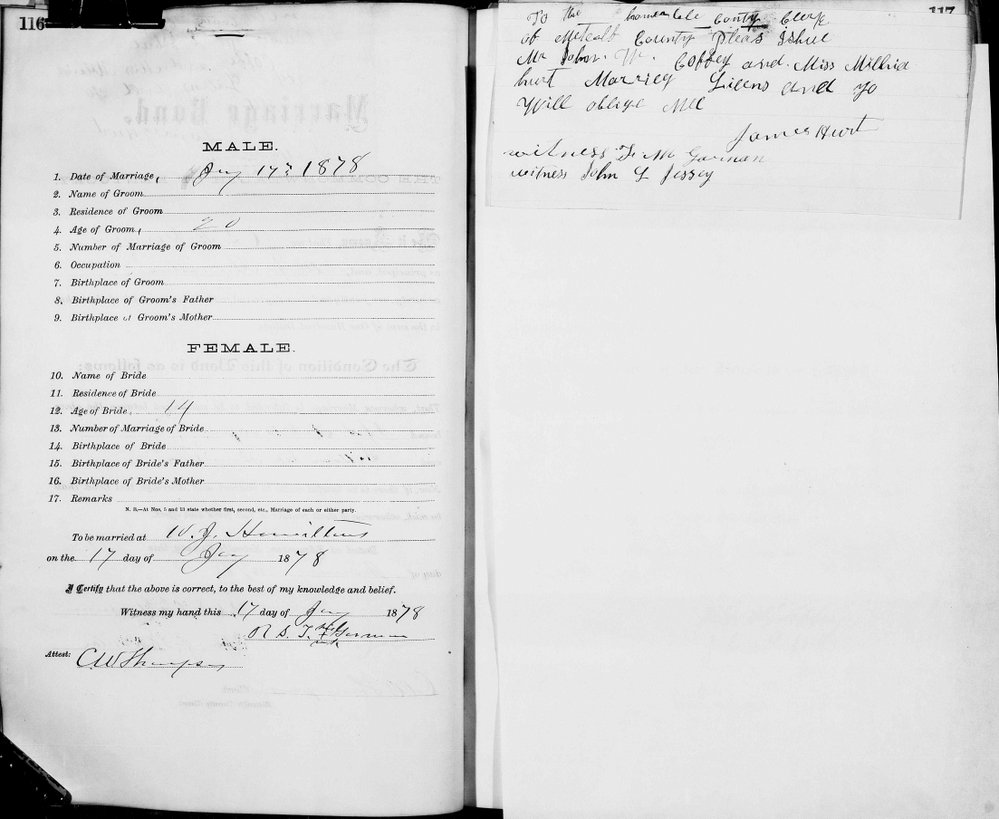 116
MALE.
1. Date of Marriage, Jay 17 1878
2. Name of Groom
3. Residence of Groom
4. Age of Groom, 20
5. Number of Marriage of Groom
6. Occupation
7. Birthplace of Groom
8. Birthplace of Groom's Father
9. Birthplace of Groom's Mother
FEMALE.
10. Name of Bride
11. Residence of Bride
12. Age of Bride, 14
13. Number of Marriage of Bride
14. Birthplace of Bride
15. Birthplace of Bride's Father
16. Birthplace of Bride's Mother
17. Remarks
N. B.—At Nos. 5 and 13 state whether first, second, etc., Marriage of each or either party.
To be married at W. J. Hamiltons
on the 17 day of Jay 1878
I Certify that the above is correct, to the best of my knowledge and belief.
Witness my hand this 17 day of Jay 1878
Attest: C W Thompson
117
To the County Clerk
of Metcalf County Pleas Ishue
Mr John W. Coffey and Miss Millia
hurt Marriey Licens and yo
Will oblige Me
James Hurt
witness M Garman
witness John L Jessey